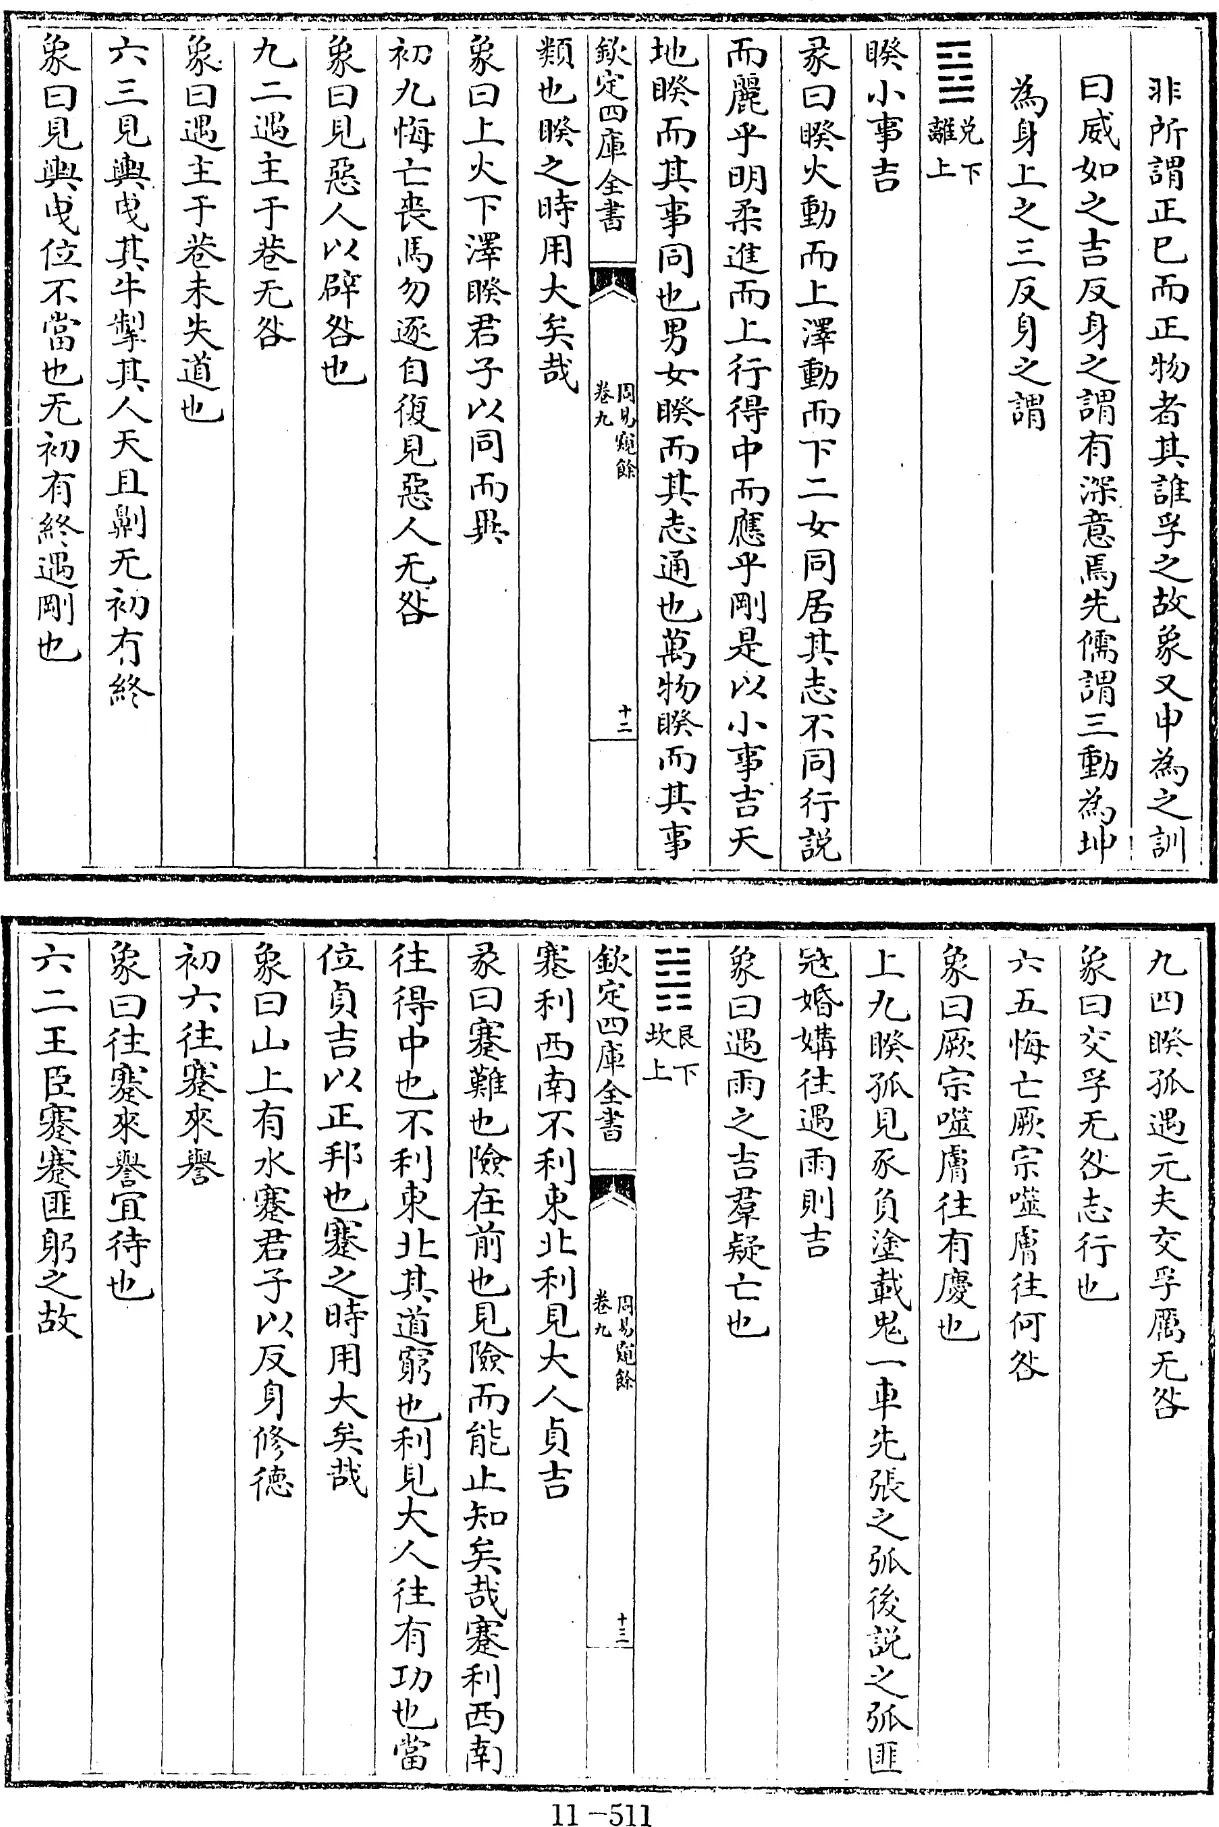 非所謂正已而正物者其誰孚之故象又申為之訓
曰威如之吉反身之謂有深意焉先儒謂三動為坤
為身上之三反身之謂
䷥兌下離上
睽小事吉
彖曰睽火動而上澤動而下二女同居其志不同行説
而麗乎明柔進而上行得中而應乎剛是以小事吉天
地睽而其事同也男女睽而其志通也萬物睽而其事
欽定四庫全書 周易窺餘 卷九 十二
類也睽之時用大矣哉
象曰上火下澤睽君子以同而異
初九悔亡喪馬勿逐自復見惡人无咎
象曰見惡人以辟咎也
九二遇主于巷无咎
象曰遇主于巷未失道也
六三見輿曵其牛掣其人天且劓无初有終
象曰見輿曵位不當也无初有終遇剛也
九四睽孤遇元夫交孚厲无咎
象曰交孚无咎志行也
六五悔亡厥宗噬膚往何咎
象曰厥宗噬膚往有慶也
上九睽孤見豕負塗載鬼一車先張之弧後説之弧匪
冦婚媾往遇雨則吉
象曰遇雨之吉羣疑亡也
䷦艮下坎上
欽定四庫全書 周易窺餘 卷九 十三
蹇利西南不利東北利見大人貞吉
彖曰蹇難也險在前也見險而能止知矣哉蹇利西南
往得中也不利東北其道窮也利見大人往有功也當
位貞吉以正邦也蹇之時用大矣哉
象曰山上有水蹇君子以反身修德
初六往蹇來譽
象曰往蹇來譽宜待也
六二王臣蹇蹇匪躬之故
11-511